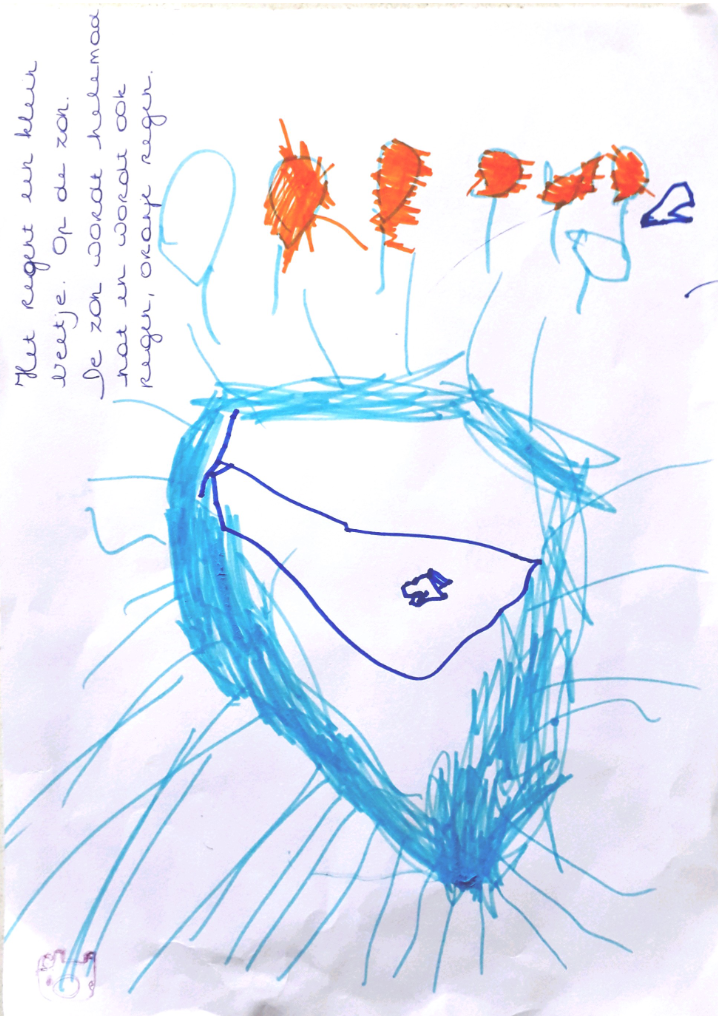 Het regent een klein
beetje. Op de zon.
De zon wordt helemaal
nat en wordt ook
regen, oranje regen.